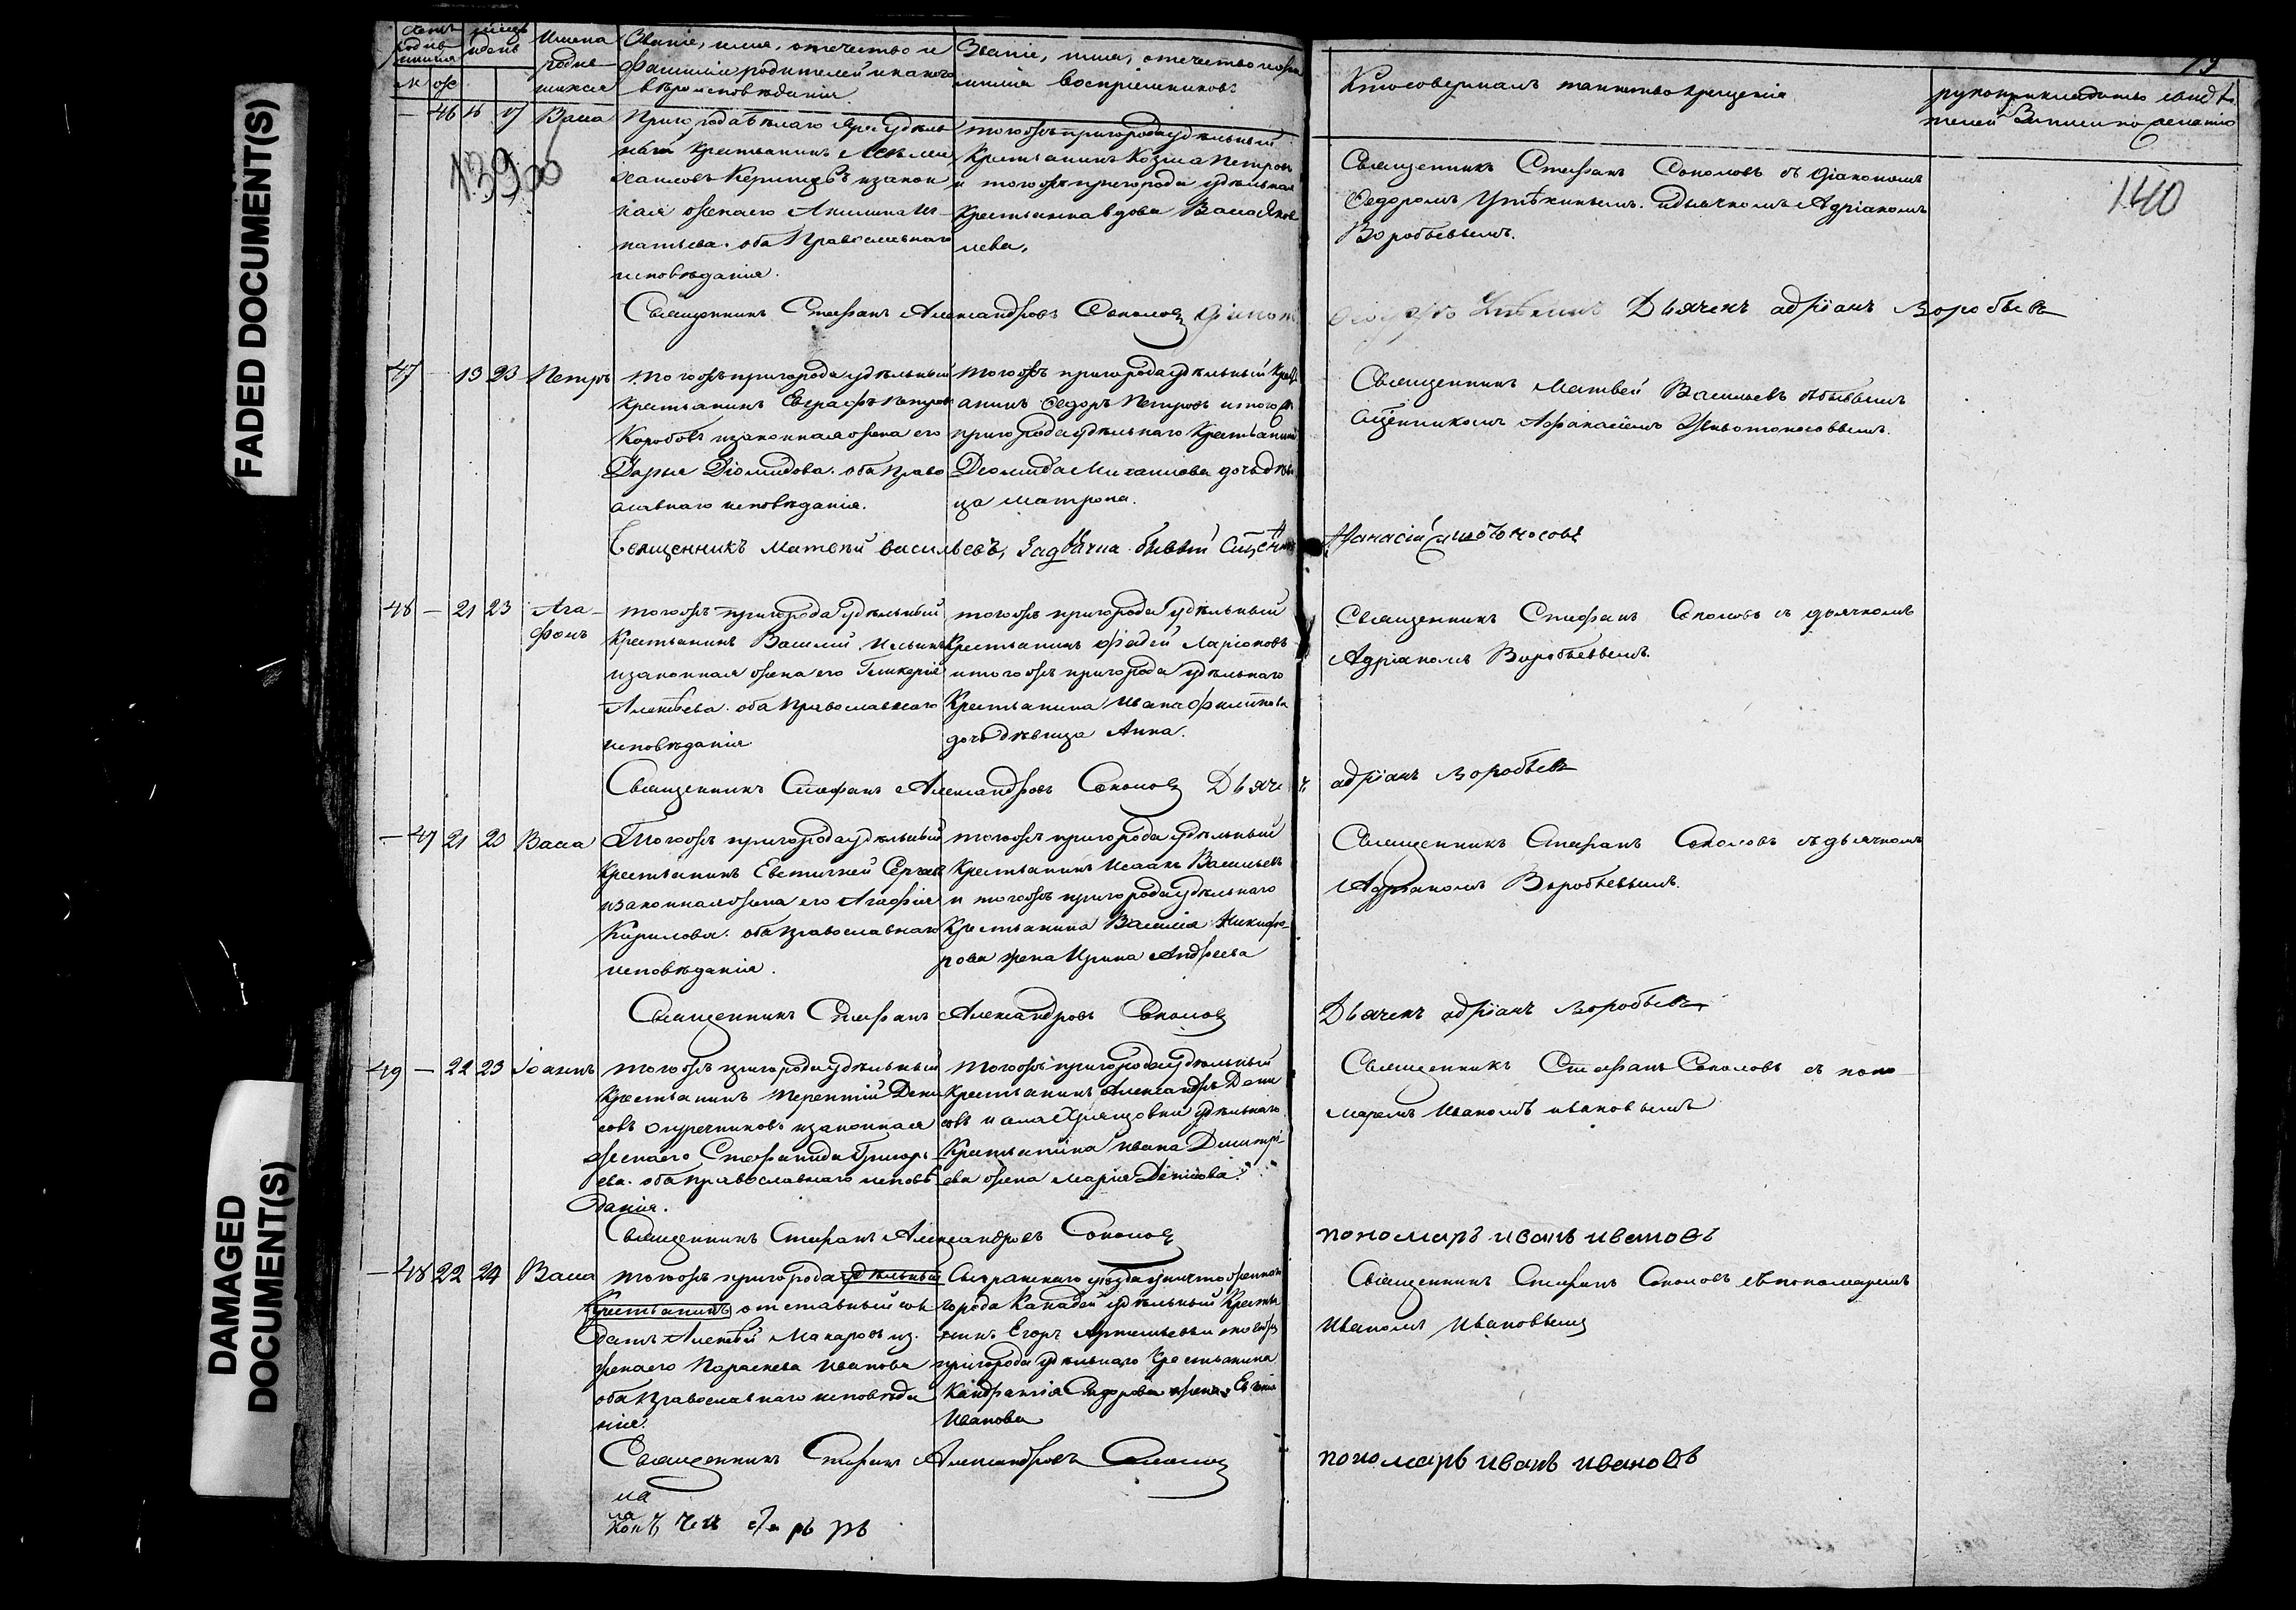 FADED DOCUMENT(S)
DAMAGED
DOCUMENT(S)
Имена
родив
шихся
Званіе, имя, отечество и
фамиліи родителей и какого
вѣроисповѣданія.
Званіе, имя, отечество и фа
милія воспріемниковъ
Кто совершалъ таинство крещенія
рукоприкладство свидѣ
телей записи по желанію
140
— 46 16 17 Васса
Пригорода Бѣлаго Яра удѣль
ный крестьянинъ
женаего Акилина Иг
натьева. оба Православнаго
исповѣданія.
тогожъ пригорода удѣльный
Крестьянинъ Козма Петровъ
и тогожъ пригорода удѣльная
Крестьянка вдова Васса Яков
лева,
Священникъ Стефанъ Соколовъ съ діакономъ
Федоромъ Утѣхинымъ. и дьячкомъ Адріаномъ
Воробьевымъ.
Священникъ Стефанъ Александровъ Соколовъ
Дьячекъ адріанъ Воробьевъ
47 — 19 23 Петръ
тогожъ пригорода удѣльный
крестьянинъ Евграфъ Петров
Коробовъ и законная жена его
Дарья Діомидова. оба право
славнаго исповѣданія.
тогожъ пригорода удѣльный Крест
анинъ Федоръ Петровъ и того ж
пригорода удѣльнаго Крестьянин
Диомида Михаилова дочь дѣви
ца Матрона.
Священникъ Матвей Васильевъ съ бывшимъ
сщенникомъ Афанасіемъ
Священникъ Матвѣй Васильевъ, За дьячка бывый Сщенн
Афанасій
48 — 21 23 Ага-
фонъ
тогожъ пригорода удѣльный
Крестьянинъ Василий Ильинъ
и законная жена его Гликерія
Алексѣева. оба православнаго
исповѣданія
тогожъ пригорода удѣльный
Крестьянинъ Фадей Ларіоновъ
и тогожъ пригорода удѣльнаго
Крестьянина Ивана Филипова
дочь дѣвица Анна.
Священникъ Стефанъ Соколовъ съ дьячкомъ
Адріаномъ Воробьевымъ.
Священникъ Стефанъ Александровъ Соколовъ Дьяче
адріанъ Воробьевъ
— 47 21 23 Васса
Тогожъ пригорода удѣльный
крестьянинъ Евстигней Сергеев
и законная жена его Агафія
Кирилова. оба православнаго
исповѣданія.
тогожъ пригорода удѣльный
Крестьянинъ Исаакъ Васильевъ
и тогожъ пригорода удѣльнаго
Крестьянина Василія Никифо-
рова жена Ирина Андреева
Священникъ Стефанъ Соколовъ съ дьячкомъ
Адріаномъ Воробьевымъ.
Священникъ Стефанъ Александровъ Соколовъ
Дьячекъ адріанъ Воробьевъ
49 — 22 23 Іоаннъ
тогожъ пригорода удѣльный
Крестьянинъ Терентій Дени
совъ Огуречниковъ и законная
жена его Стефанида Григорь
ева. оба православнаго исповѣ
данія.
тогожъ пригорода удѣльный
Крестьянинъ Александръ Дени
совъ и села Хрящовки удѣльнаго
Крестьянина Ивана Димитрі-
ева жена Марія Денисова.
Священникъ Стефанъ Соколовъ съ поно-
маремъ Иваномъ Ивановымъ
Священникъ Стефанъ Александровъ Соколовъ
пономарь иванъ ивановъ
— 48 22 24 Васса
тогожъ пригорода удѣльный
Крестьянинъ отставный сол
датъ Алексѣй Макаровъ из.
жена его Параскева Иванова
оба православнаго исповѣда
нія.
Сызранскаго уѣзда уничтоженнаго
города Канадей удѣльный Крестья
нинъ Егоръ Артемьевъ и тогожъ
пригорода удѣльнаго Крестьянина
Кондратія Сидорова жена Евгенія
Иванова
Священникъ Стефанъ Соколовъ съ пономаремъ
Иваномъ Ивановымъ
Священникъ Стефанъ Александровъ Соколовъ
пономарь иванъ ивановъ